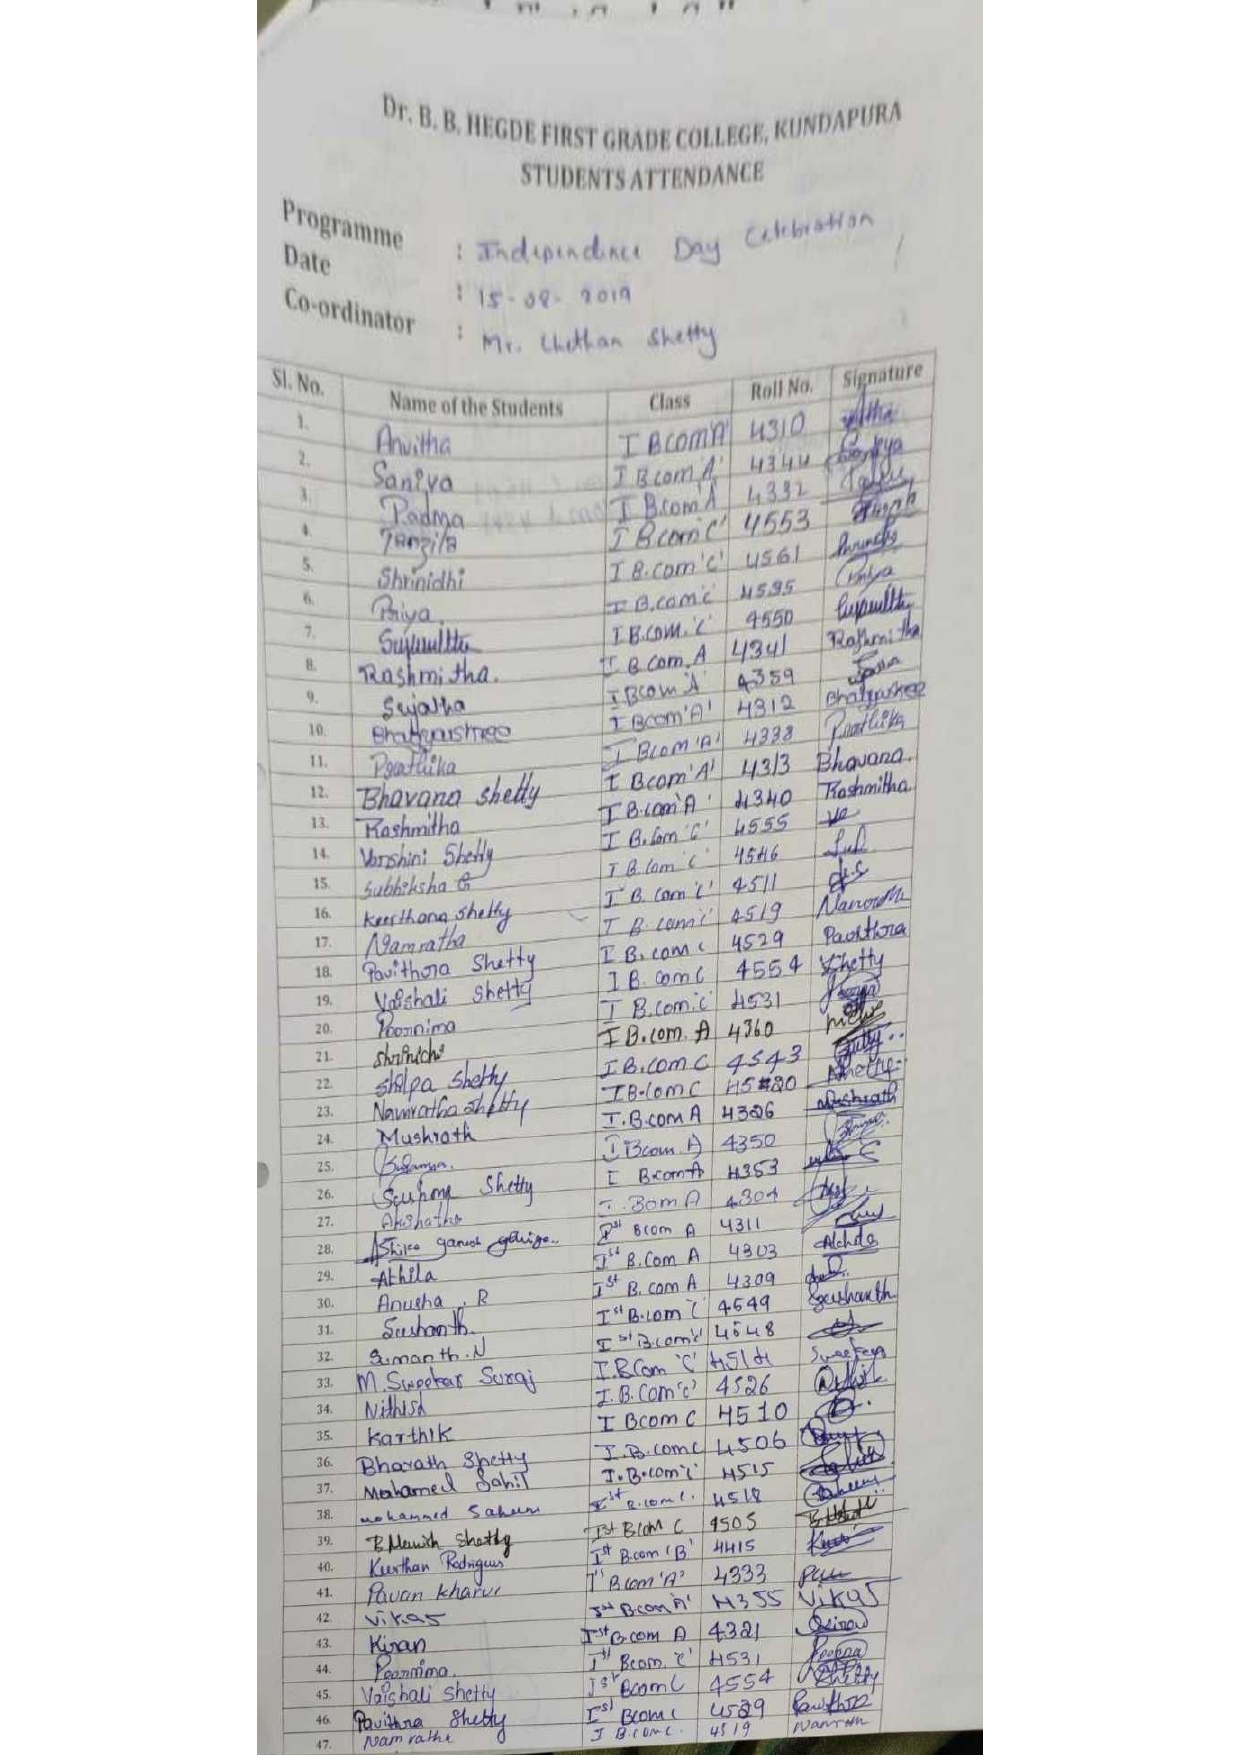 Dr. B. B. HEGDE FIRST GRADE COLLEGE, KUNDAPURA
STUDENTS ATTENDANCE
Programme : Independence Day Celebration
Date : 15-08-2019
Co-ordinator : Mr. Chethan Shetty
Sl. No. Name of the Students Class Roll No. Signature
1. Anvitha I Bcom'A' 4310
2. Saniya I B.com A' 4344 Saniya
3. Padma I B.com'A 4332
4. Tanzila I Bcom'C' 4553
5. Shrinidhi I B.com 'C' 4561
6. Priya. I B.com'c' 4535 Priya
7. I B.com.'C' 4550
8. Rashmitha. I B.com.A 4341 Rashmitha
9. Sujatha I Bcom'A' 4359
10. Bhagyashree I Bcom'A' 4312 Bhagyashree
11. Prathika I Bcom'A' 4338 Prathika
12. Bhavana shetty I Bcom'A' 4313 Bhavana.
13. Rashmitha I B.com'A' 4340 Rashmitha
14. Varshini Shetty I B.com 'C' 4555
15. Subhiksha G I B.com C' 4546
16. Keerthana shetty I B. com 'C' 4511
17. Namratha I B. com'c' 4519 Namratha
18. Pavithra Shetty I B.com c 4529 Pavithra
19. Vaishali Shetty I B. com C 4554 Shetty
20. Poornima I B.com.'c' 4531
21. Shrinidhi I B.com. A 4360
22. Shilpa Shetty I B.com C 4543
23. Namratha Shetty I B.com C 4520 Shetty
24. Mushrath I.B.com A 4326 Mushrath
25. I Bcom A 4350
26. Shetty I Bcom A 4353
27. Akshatha I.Bom A 4304
28. ganesh Ist Bcom A 4311
29. Athila Ist B.Com A 4303
30. Anusha . R Ist B. com A 4309
31. Sushanth. Ist B.com 'C 4549 Sushanth
32. Sumanth.N Ist B.com'c' 4548
33. M.Sweekar Suraj I.B.Com 'C' 4514
34. Nithish I.B.Com'c' 4526
35. Karthik I Bcom C 4510
36. Bharath Shetty I.B.comc 4506
37. Mohamed Sahil I.B.com'c' 4515
38. mohammed Saheem Ist B.com c. 4518
39. Shetty Ist Bcom C 4505
40. Keerthan Rodrigues Ist B.com 'B' 4415
41. Pavan kharvi Ist Bcom 'A' 4333
42. Vikas Ist Bcom A' 4355 Vikas
43. Kiran Ist B.com A 4321
44. Poornima. Ist Bcom. 'C' 4531
45. Vaishali Shetty Ist Bcom C 4554 Shetty
46. Pavithra Shetty Ist Bcom c 4529 Pavithra
47. Namratha I B.com C. 4519